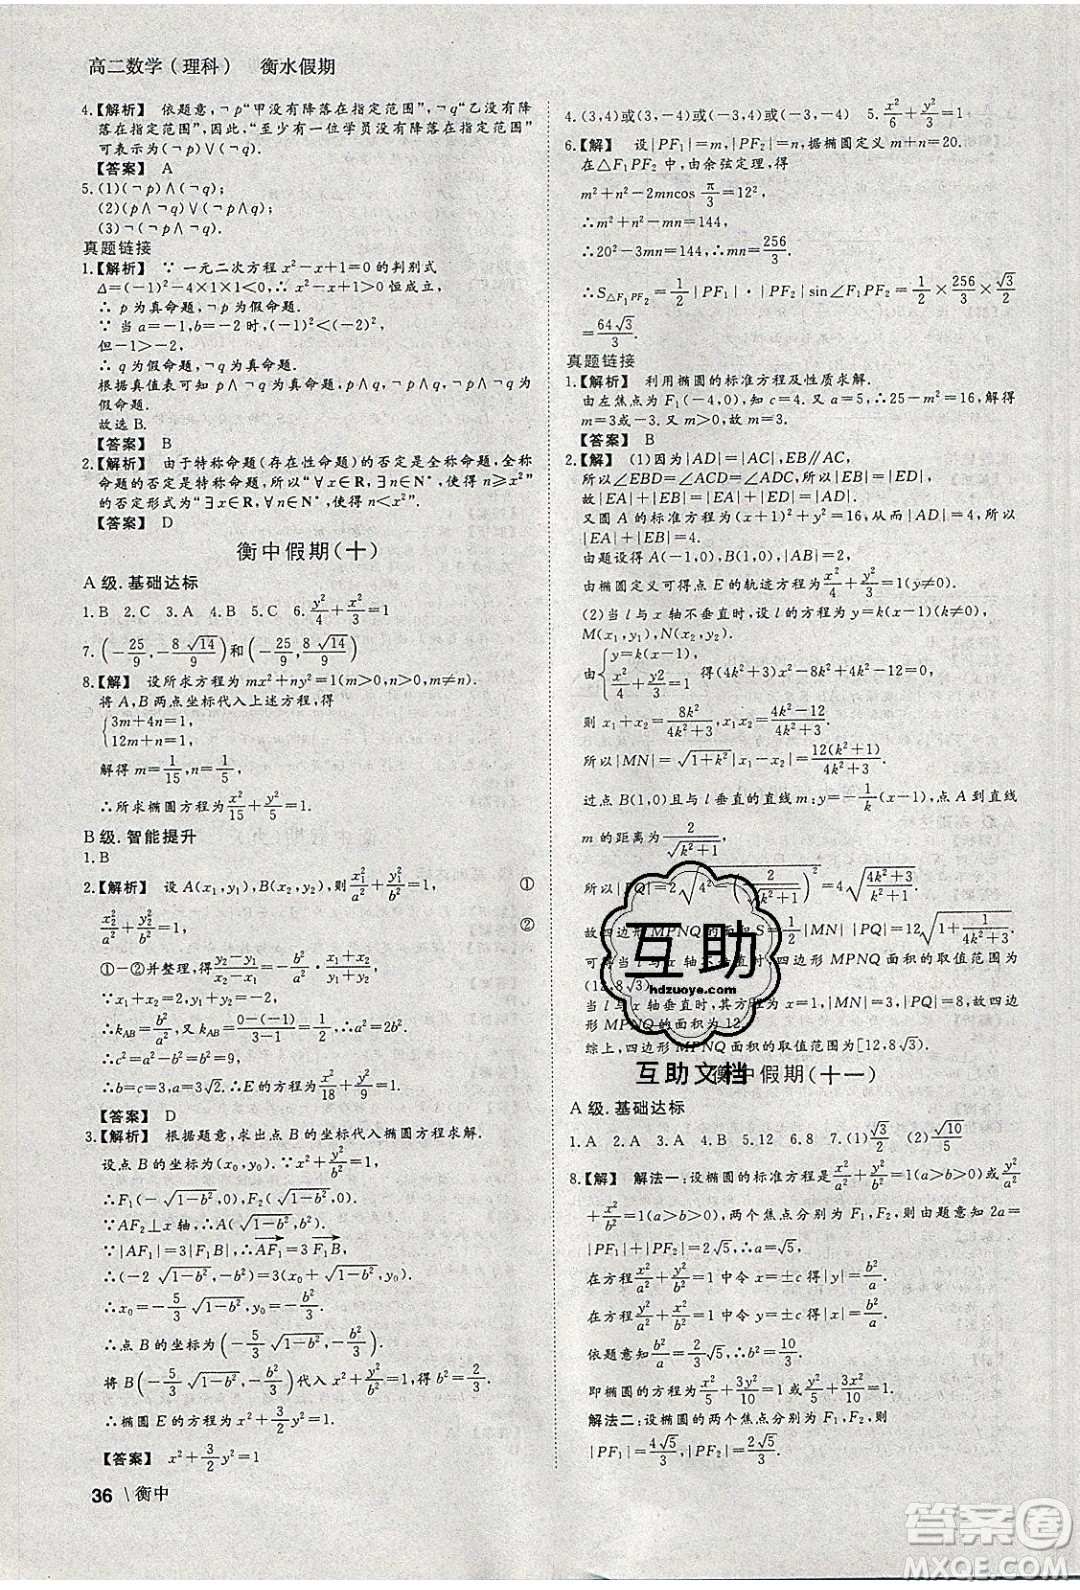 高二数学(理科)　衡水假期
4.【解析】 依题意,¬p“甲没有降落在指定范围”,¬q“乙没有降
落在指定范围”,因此.“至少有一位学员没有降落在指定范围”
可表示为(¬p)∨(¬q).
【答案】 A
5.(1)(¬p)∧(¬q);
(2)(p∧¬q)∨(¬p∧q);
(3)¬(p∧q).
真题链接
1.【解析】 ∵ 一元二次方程x²-x+1=0的判别式
Δ=(-1)²-4×1×1<0,∴x²-x+1>0恒成立,
∴ p为真命题,¬p为假命题.
∵ 当a=-1,b=-2时,(-1)²<(-2)²,
但-1>-2,
∴ q为假命题,¬q为真命题.
根据真值表可知p∧¬q为真命题,p∧q,¬p∧q,¬p∧¬q为
假命题.
故选B.
【答案】 B
2.【解析】 由于特称命题(存在性命题)的否定是全称命题,全称
命题的否定是特称命题,所以“∀x∈R,∃n∈N*,使得n≥x²”
的否定形式为“∃x∈R,∀n∈N*,使得n<x²”.
【答案】 D
衡中假期(十)
A级.基础达标
1.B 2.C 3.A 4.B 5.A 6.y²/4+x²/3=1
7.(-25/9,-8√14/9)和(-25/9,8√14/9)
8.【解】 设所求方程为mx²+ny²=1(m>0,n>0,m≠n).
将A,B两点坐标代入上述方程,得
{3m+4n=1,
12m+n=1,
解得m=1/15,n=1/5,
∴所求椭圆方程为x²/15+y²/5=1.
B级.智能提升
1.B
2.【解析】 设A(x₁,y₁),B(x₂,y₂),则x₁²/a²+y₁²/b²=1, ①
x₂²/a²+y₂²/b²=1, ②
①-②并整理,得(y₂-y₁)/(x₂-x₁)=-b²/a²·(x₁+x₂)/(y₁+y₂).
∵x₁+x₂=2,y₁+y₂=-2,
∴k_AB=b²/a².又k_AB=(0-(-1))/(3-1)=1/2,∴a²=2b².
∴c²=a²-b²=2b²-b²=b²=9,
∴b=c=3,a²=18,∴E的方程为x²/18+y²/9=1.
【答案】 D
3.【解析】 根据题意,求出点B的坐标代入椭圆方程求解.
设点B的坐标为(x₀,y₀).∵x²+y²/b²=1,
∴F₁(-√(1-b²),0),F₂(√(1-b²),0).
∵AF₂⊥x轴,∴A(√(1-b²),b²).
∵|AF₁|=3|F₁B|,∴AF₁=3F₁B,
∴(-2√(1-b²),-b²)=3(x₀+√(1-b²),y₀).
∴x₀=-5/3√(1-b²),y₀=-b²/3.
∴点B的坐标为(-5/3√(1-b²),-b²/3).
将B(-5/3√(1-b²),-b²/3)代入x²+y²/b²=1,得b²=2/3.
∴椭圆E的方程为x²+3/2y²=1.
【答案】 x²+3/2y²=1
36 \衡中
4.(3,4)或(3,-4)或(-3,4)或(-3,-4) 5.x²/6+y²/3=1
6.【解】 设|PF₁|=m,|PF₂|=n.据椭圆定义m+n=20.
在△F₁PF₂中,由余弦定理,得
m²+n²-2mncos π/3=12²,
∴m²+n²-mn=144,
∴20²-3mn=144,∴mn=256/3.
∴S△F₁PF₂=1/2|PF₁|·|PF₂|sin∠F₁PF₂=1/2×256/3×√3/2
=64√3/3.
真题链接
1.【解析】 利用椭圆的标准方程及性质求解.
由左焦点为F₁(-4,0),知c=4.又a=5,∴25-m²=16,解得
m=3或-3.又m>0,故m=3.
【答案】 B
2.【解】 (1)因为|AD|=|AC|,EB∥AC,
所以∠EBD=∠ACD=∠ADC,所以|EB|=|ED|,
故|EA|+|EB|=|EA|+|ED|=|AD|.
又圆A的标准方程为(x+1)²+y²=16,从而|AD|=4,所以
|EA|+|EB|=4.
由题设得A(-1,0),B(1,0),|AB|=2,
由椭圆定义可得点E的轨迹方程为x²/4+y²/3=1(y≠0).
(2)当l与x轴不垂直时,设l的方程为y=k(x-1)(k≠0),
M(x₁,y₁),N(x₂,y₂).
由{y=k(x-1), x²/4+y²/3=1 得(4k²+3)x²-8k²x+4k²-12=0,
则x₁+x₂=8k²/(4k²+3),x₁x₂=(4k²-12)/(4k²+3)
所以|MN|=√(1+k²)|x₁-x₂|=12(k²+1)/(4k²+3).
过点B(1,0)且与l垂直的直线m:y=-1/k(x-1),点A到直线
m的距离为2/√(k²+1),
所以|PQ|=2√(4²-(2/√(k²+1))²)=4√((4k²+3)/(k²+1)).
故四边形MPNQ的面积S=1/2|MN||PQ|=12√(1+1/(4k²+3)).
可得当l与x轴不垂直时,四边形MPNQ面积的取值范围为
(12,8√3).
当l与x轴垂直时,其方程为x=1,|MN|=3,|PQ|=8,故四边
形MPNQ的面积为12.
综上,四边形MPNQ面积的取值范围为[12,8√3).
衡中假期(十一)
A级.基础达标
1.A 2.A 3.A 4.B 5.12 6.8 7.(1)√3/2 (2)√10/5
8.【解】 解法一:设椭圆的标准方程是x²/a²+y²/b²=1(a>b>0)或y²/a²
+x²/b²=1(a>b>0),两个焦点分别为F₁,F₂,则由题意知2a=
|PF₁|+|PF₂|=2√5,∴a=√5.
在方程x²/a²+y²/b²=1中令x=±c得|y|=b²/a,
在方程y²/a²+x²/b²=1中令y=±c得|x|=b²/a,
依题意知b²/a=2/3√5,∴b²=10/3.
即椭圆的方程为x²/5+3y²/10=1或y²/5+3x²/10=1.
解法二:设椭圆的两个焦点分别为F₁,F₂,则
|PF₁|=4√5/3,|PF₂|=2√5/3.
互助
hdzuoye.com
互助文档
答案圈
MXQE.COM